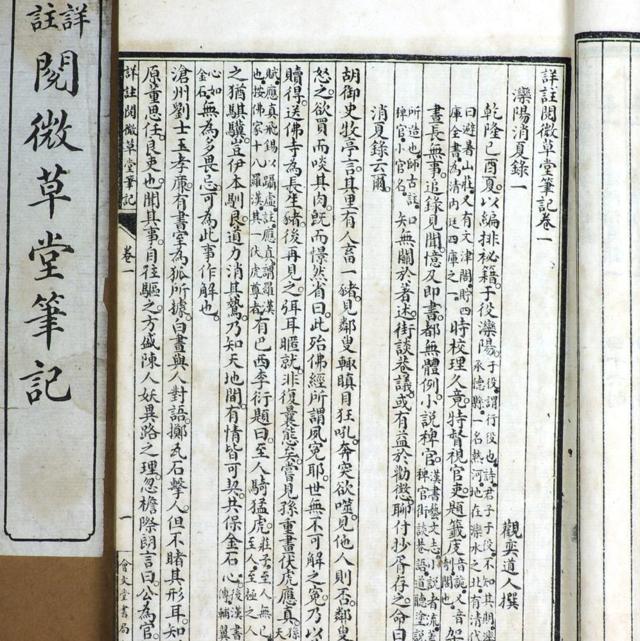 詳註
閱微草堂筆記
詳註閱微草堂筆記卷一
灤陽消夏錄一
觀奕道人撰
乾隆己酉夏。以編排祕籍。于役灤陽。
時校理久竟。特督視官吏題籤庋架
晝長無事。追錄見聞。憶及即書。都無體例。小說稗官。
知無關於著述。街談巷議。或有益於勸懲。聊付抄胥存之。命曰
消夏錄云爾
胡御史牧亭言。其里有人畜一豬。見鄰叟輒瞋目狂吼。奔突欲噬。見他人則否。鄰叟
怒之。欲買而啖其肉。既而憬然省曰。此殆佛經所謂夙冤耶。世無不可解之冤。乃以
贖得。送佛寺為長生豬。後再見之。弭耳暱就。非復曩態矣。嘗見孫重畫伏虎應真。
有巴西李衍題曰。至人騎猛虎。
之猶騏驥。豈伊本馴良。道力消其鷙。乃知天地間。有情皆可契。共保金石心。
無為多畏忌。可為此事作解也。
滄州劉士玉孝廉。有書室為狐所據。白晝與人對語。擲瓦石擊人。但不睹其形耳。知
原董思任。良吏也。聞其事。自往驅之。方盛陳人妖異路之理。忽檐際朗言曰。公為官
詳註閱微草堂筆記
卷一
一
會文堂書局